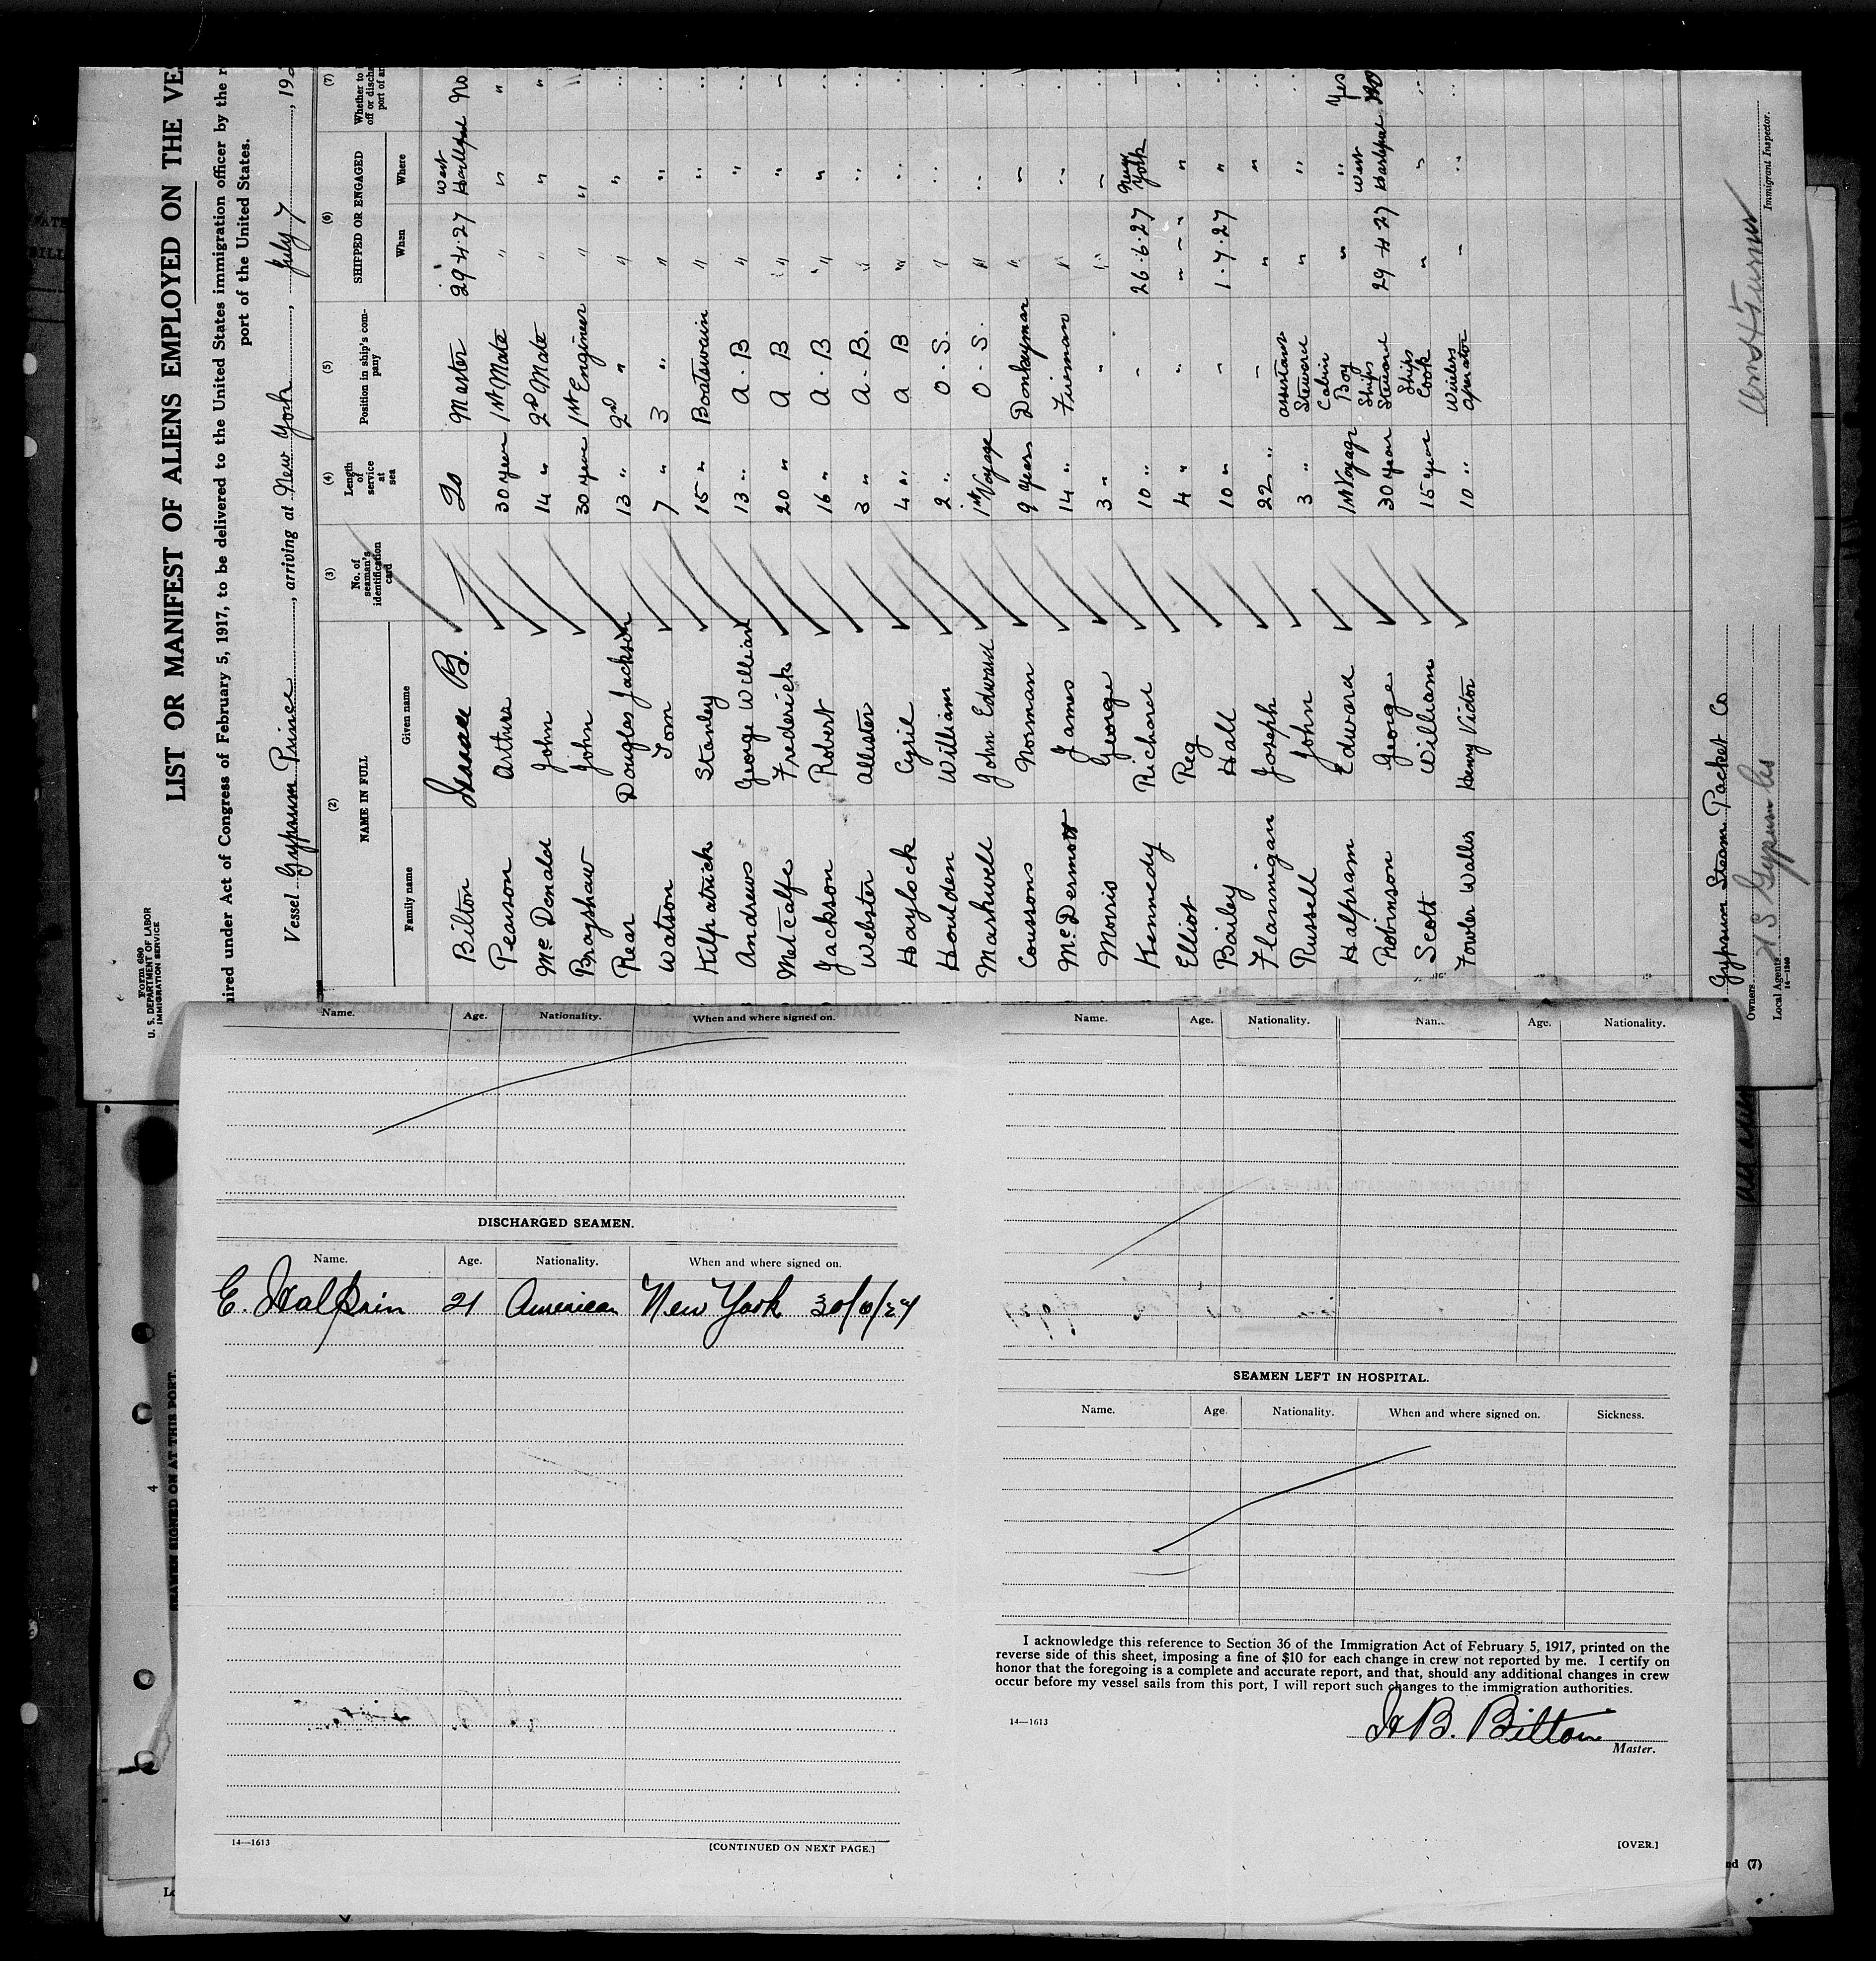 Form 680
U. S. DEPARTMENT OF LABOR
IMMIGRATION SERVICE
LIST OR MANIFEST OF ALIENS EMPLOYED ON THE VE
uired under Act of Congress of February 5, 1917, to be delivered to the United States immigration officer by the r
port of the United States.
Vessel Gypsum Prince, arriving at New York, July 7, 192
(2) (3) (4) (5) (6) (7)
NAME IN FULL No. of seaman's identification card Length of service at sea Position in ship's company SHIPPED OR ENGAGED Whether to off or discha port of ar
Family name Given name When Where
Bilton Isaac B. 20 Master 29.4.27 West Hartlepool No
Pearson Arthur 30 year 1st Mate " " "
Mc Donald John 14 " 2nd Mate " " "
Brayshaw John 30 year 1st Engineer " " "
Rear Douglas Jackson 13 " 2nd " " " "
Watson Tom 7 " 3 " " " "
Kilpatrick Stanley 15 " Boatswain " " "
Andrews George William 13 " A. B " " "
Metcalfe Frederick 20 " A B " " "
Jackson Robert 16 " A. B " " "
Webster Allister 3 " A. B. " " "
Haylock Cyril 4 " A B " " "
Houlden William 2 " O. S. " " "
Mashwell John Edward 1st Voyage O. S. " " "
Coussons Norman 9 years Donkeyman " " "
Mc Dermott James 14 " Fireman " " "
Morris George 3 " " " " "
Kennedy Richard 10 " " 26.6.27 New York "
Elliot Reg 4 " " " " "
Bailey Hall 10 " " 1.7.27 " "
Flannigan Joseph 22 " " " " "
Russell John 3 " Assistant Steward " " "
Halpram Edward 1st Voyage Cabin Boy " " Yes
Robinson George 30 year Ships Steward 29.4.27 West Hartlepool No
Scott William 15 year Ships Cook " " "
Fowler Walls Henry Victor 10 " Wireless Operator " " "
Gypsum Steam Packet Co
Owners
Local Agents U S Gypsum Co
14-1240
Immigrant Inspector.
Name. Age. Nationality. When and where signed on.
DISCHARGED SEAMEN.
Name. Age. Nationality. When and where signed on.
E. Halprin 21 American New York 30/6/27
14—1613 [CONTINUED ON NEXT PAGE.]
Name. Age. Nationality. Name. Age. Nationality.
SEAMEN LEFT IN HOSPITAL.
Name. Age. Nationality. When and where signed on. Sickness.
I acknowledge this reference to Section 36 of the Immigration Act of February 5, 1917, printed on the
reverse side of this sheet, imposing a fine of $10 for each change in crew not reported by me. I certify on
honor that the foregoing is a complete and accurate report, and that, should any additional changes in crew
occur before my vessel sails from this port, I will report such changes to the immigration authorities.
14—1613
B. Bilton
Master.
[OVER.]
4
SEAMEN SIGNED ON AT THIS PORT.
nd (7)